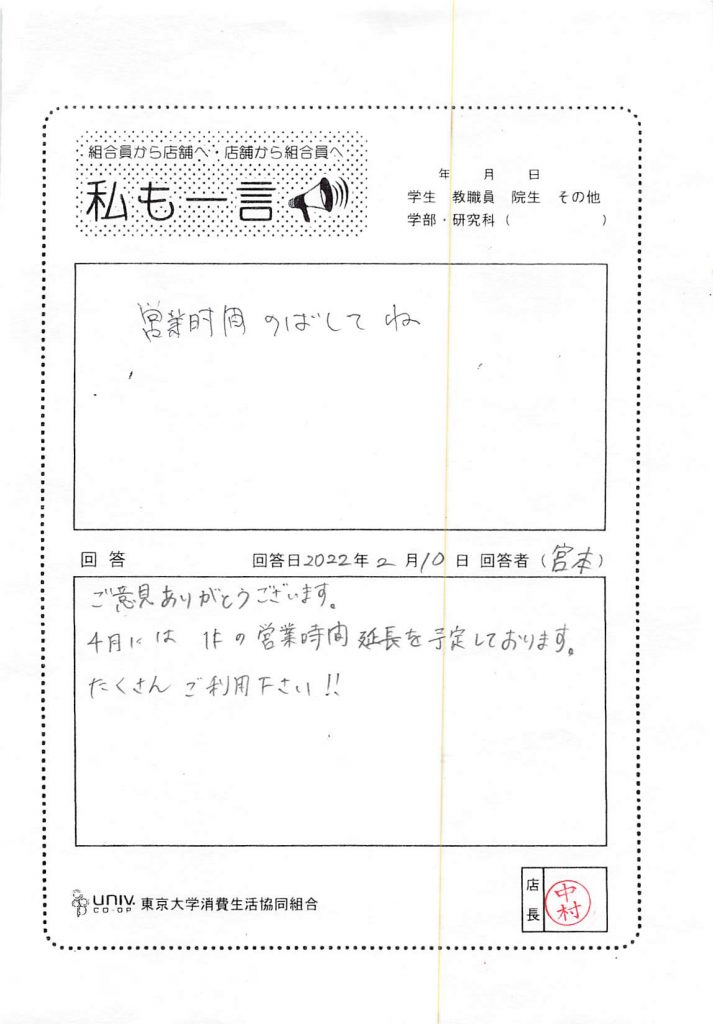 組合員から店舗へ・店舗から組合員へ
私も一言
年 月 日
学生 教職員 院生 その他
学部・研究科 ( )
営業时间 のばしてね
回答 回答日2022年2月10日 回答者(宮本)
ご意見ありがとうございます。
4月には の営業時間延長を予定しております。
たくさんご利用下さい!!
UNIV. CO-OP 東京大学消費生活協同組合
店長
中村